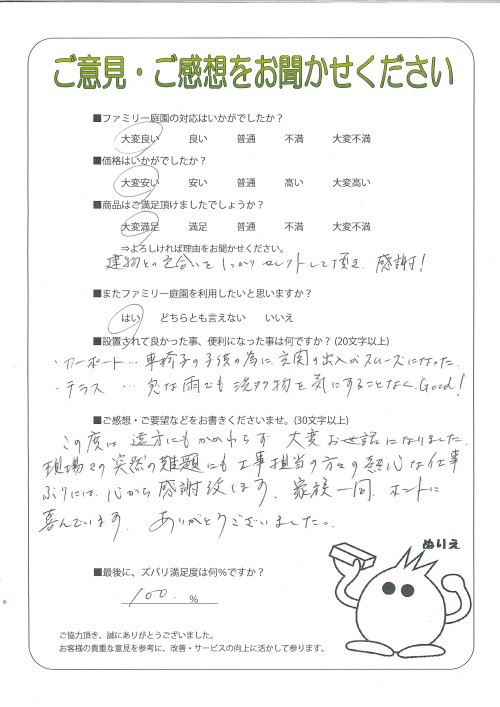 ご意見・ご感想をお聞かせください
■ファミリー庭園の対応はいかがでしたか？
大変良い 良い 普通 不満 大変不満
■価格はいかがでしたか？
大変安い 安い 普通 高い 大変高い
■商品はご満足頂けましたでしょうか？
大変満足 満足 普通 不満 大変不満
⇒よろしければ理由をお聞かせください。
建物との色合いをしっかりセレクトして頂き、感謝！
■またファミリー庭園を利用したいと思いますか？
はい どちらとも言えない いいえ
■設置されて良かった事、便利になった事は何ですか？(20文字以上)
・カーポート…車椅子の子供の為に玄関の出入がスムーズになった。
・テラス…急な雨でも洗タク物を気にすることなくGood！
■ご感想・ご要望などをお書きくださいませ。(30文字以上)
この度は、遠方にもかかわらず大変お世話になりました。
現場での突然の難題にも工事担当の方々の熱心な仕事
ぶりには、心から感謝致します。家族一同、ホントに
喜んでいます。ありがとうございました。
ぬりえ
■最後に、ズバリ満足度は何％ですか？
100 %
ご協力頂き、誠にありがとうございました。
お客様の貴重な意見を参考に、改善・サービスの向上に活かして参ります。